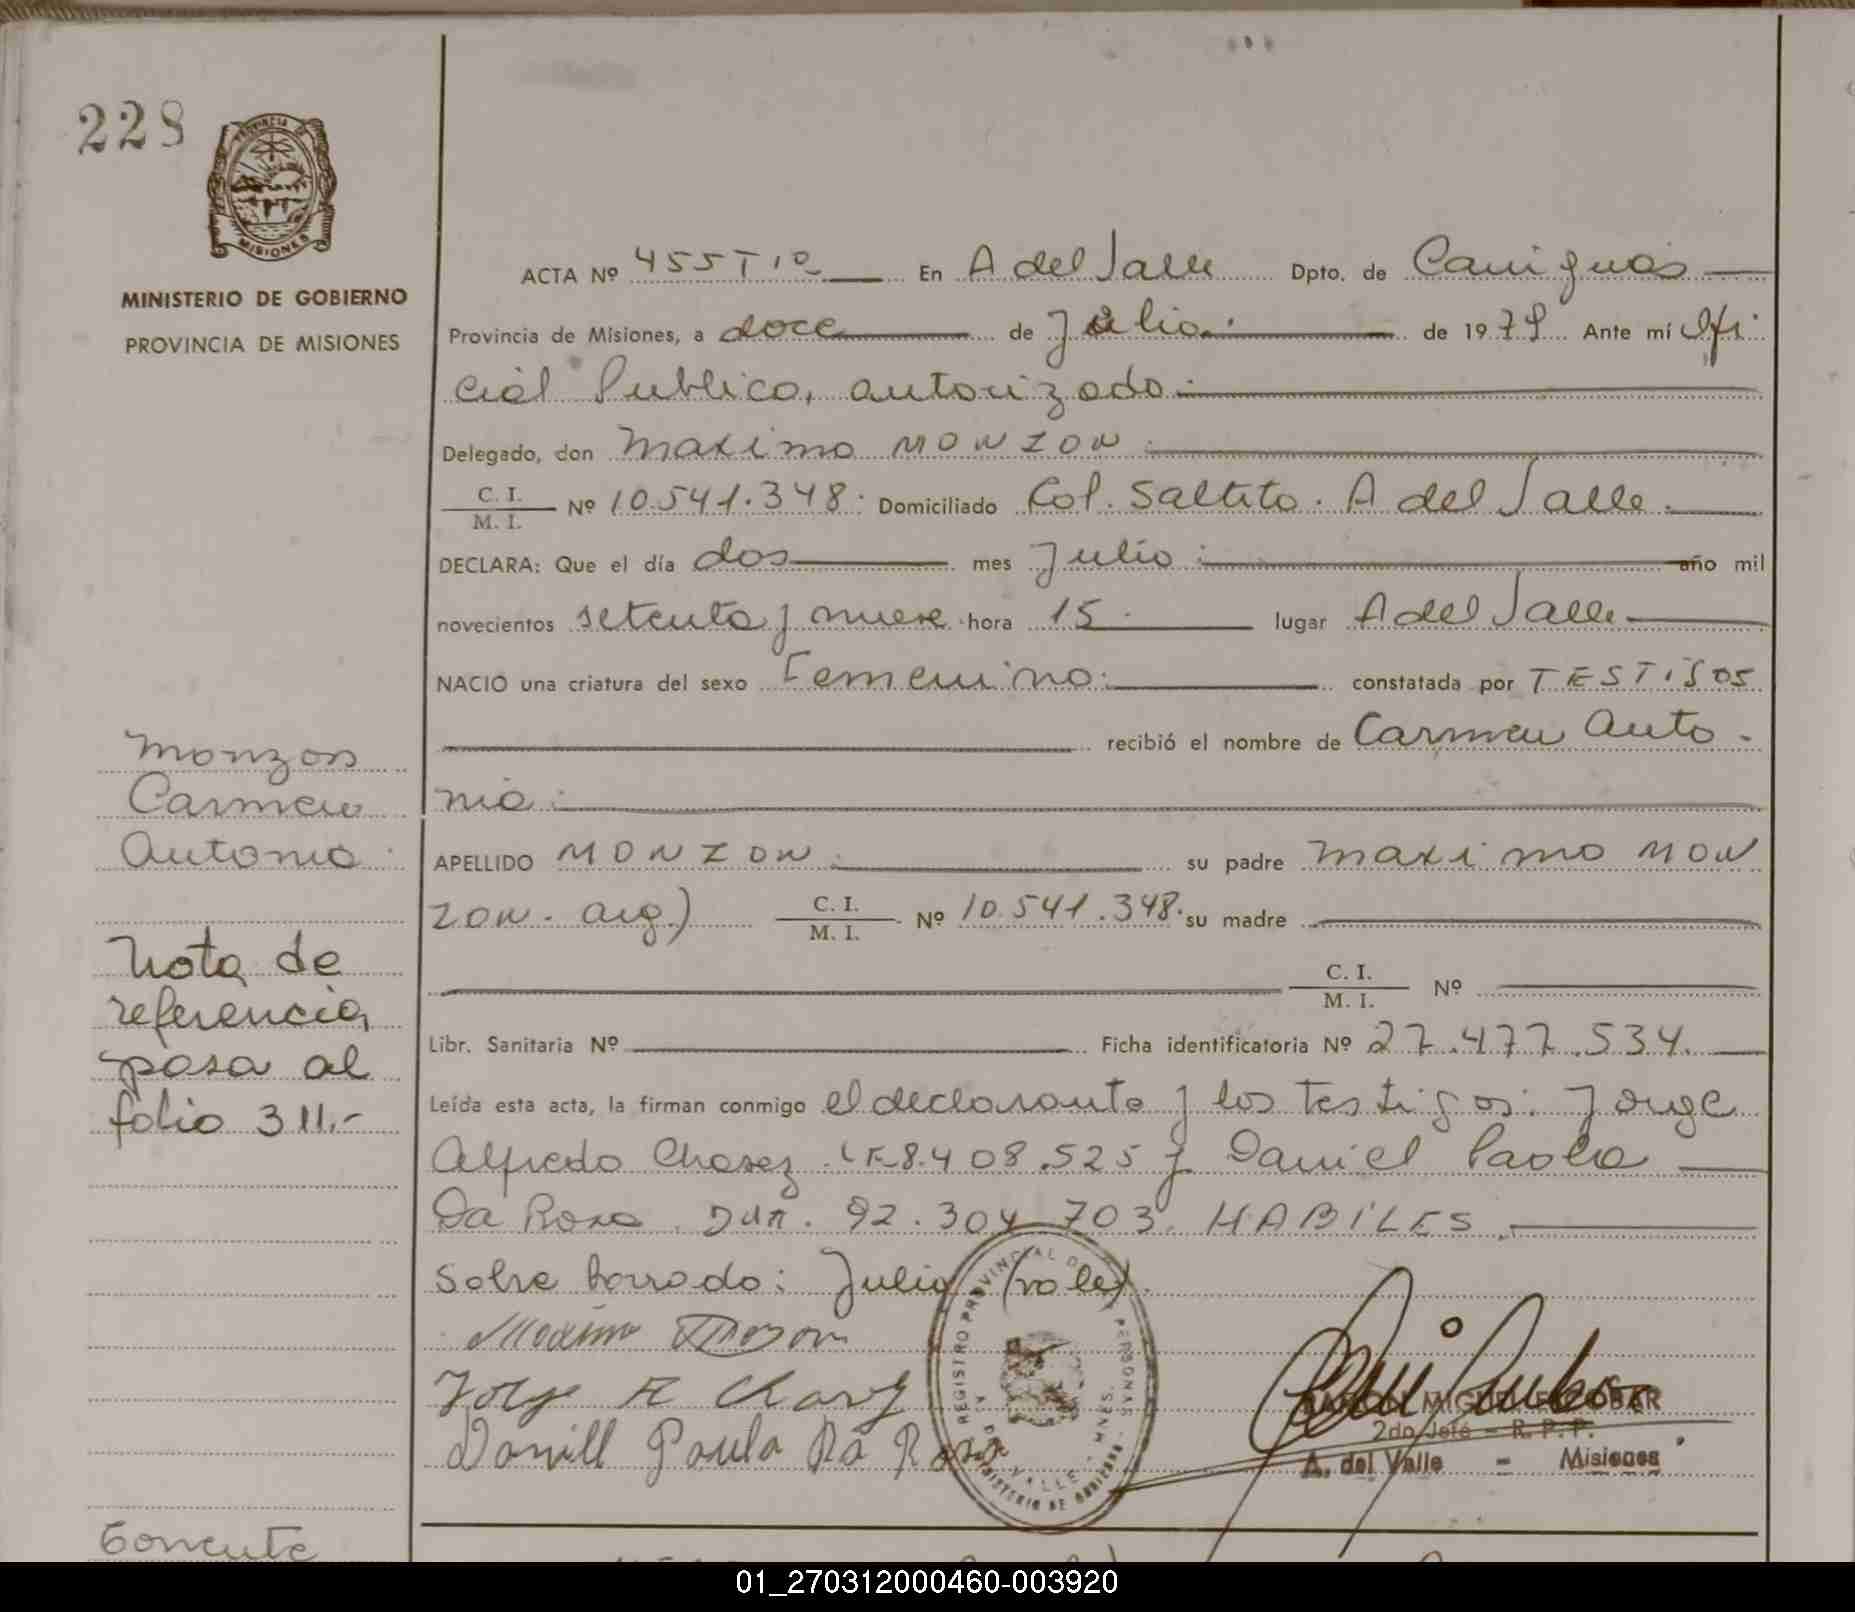 228
PROVINCIA DE
MISIONES
MINISTERIO DE GOBIERNO
PROVINCIA DE MISIONES
ACTA Nº 455 Tº En A del Valle Dpto. de Cainguas
Provincia de Misiones, a doce de Julio de 1979 Ante mí Ofi
cial Publico, autorizado
Delegado, don Maximo MONZON
C. I.
M. I. Nº 10.541.348. Domiciliado Col. Saltito. A del Valle.
DECLARA: Que el día dos mes Julio año mil
novecientos setenta y nueve hora 15 lugar A del Valle
NACIO una criatura del sexo Femenino constatada por TESTIGOS
recibió el nombre de Carmen Anto-
nia
APELLIDO MONZON su padre Maximo MON
ZON. arg.) C. I.
M. I. Nº 10.541.348. su madre
C. I.
M. I. Nº
Libr. Sanitaria Nº Ficha identificatoria Nº 27.477.534.
Leída esta acta, la firman conmigo el declarante y los testigos: Jorge
Alfredo Chavez. LE 8.408.525 y Daniel Paola
Da Rosa. 92.304.703. HABILES.
Sobre borrado: Julio (vale).
Maximo Monzon
Jorge A Chavez
Danill Paula Da Rosa
REGISTRO PROVINCIAL DE PERSONAS
A. DEL VALLE - MNES.
MINISTERIO DE GOBIERNO
RAMON MIGUEL ESCOBAR
2do Jefe - R. P. P.
A. del Valle - Misiones
Monzon
Carmen
Antonia
Nota de
referencia
pasa al
folio 311.-
01_270312000460-003920